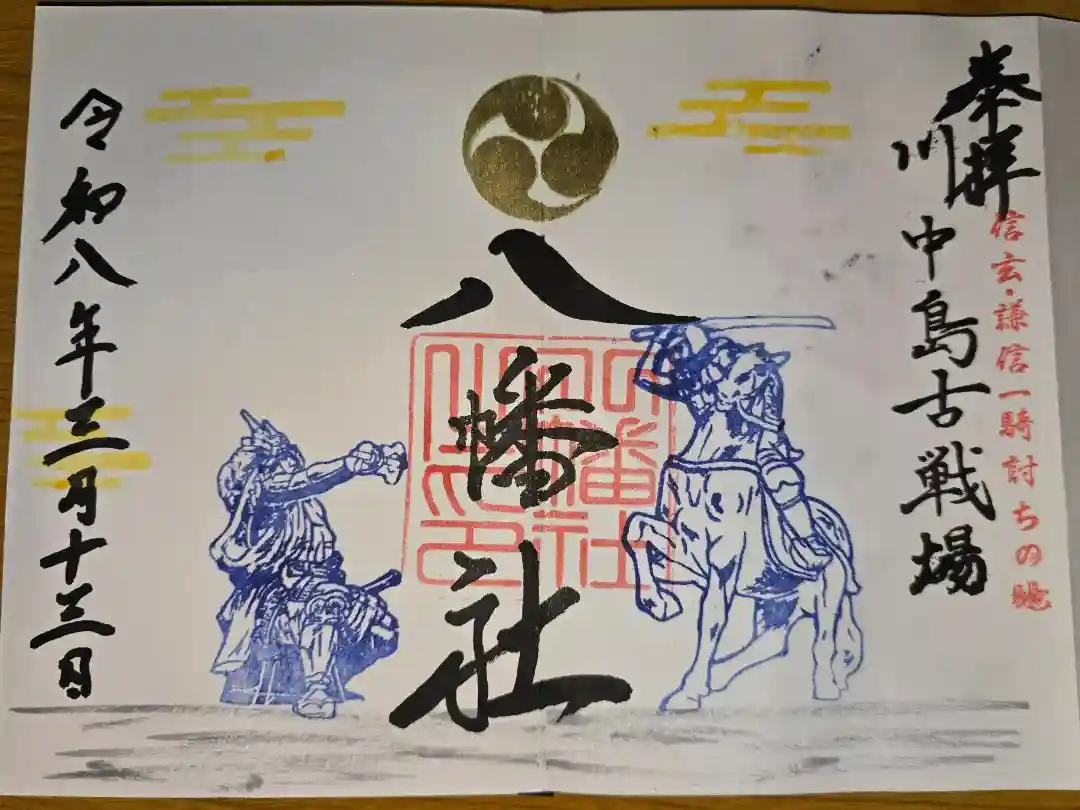 奉拝
信玄・謙信一騎討ちの地
川中島古戦場
八幡社
八幡社
令和八年三月十三日